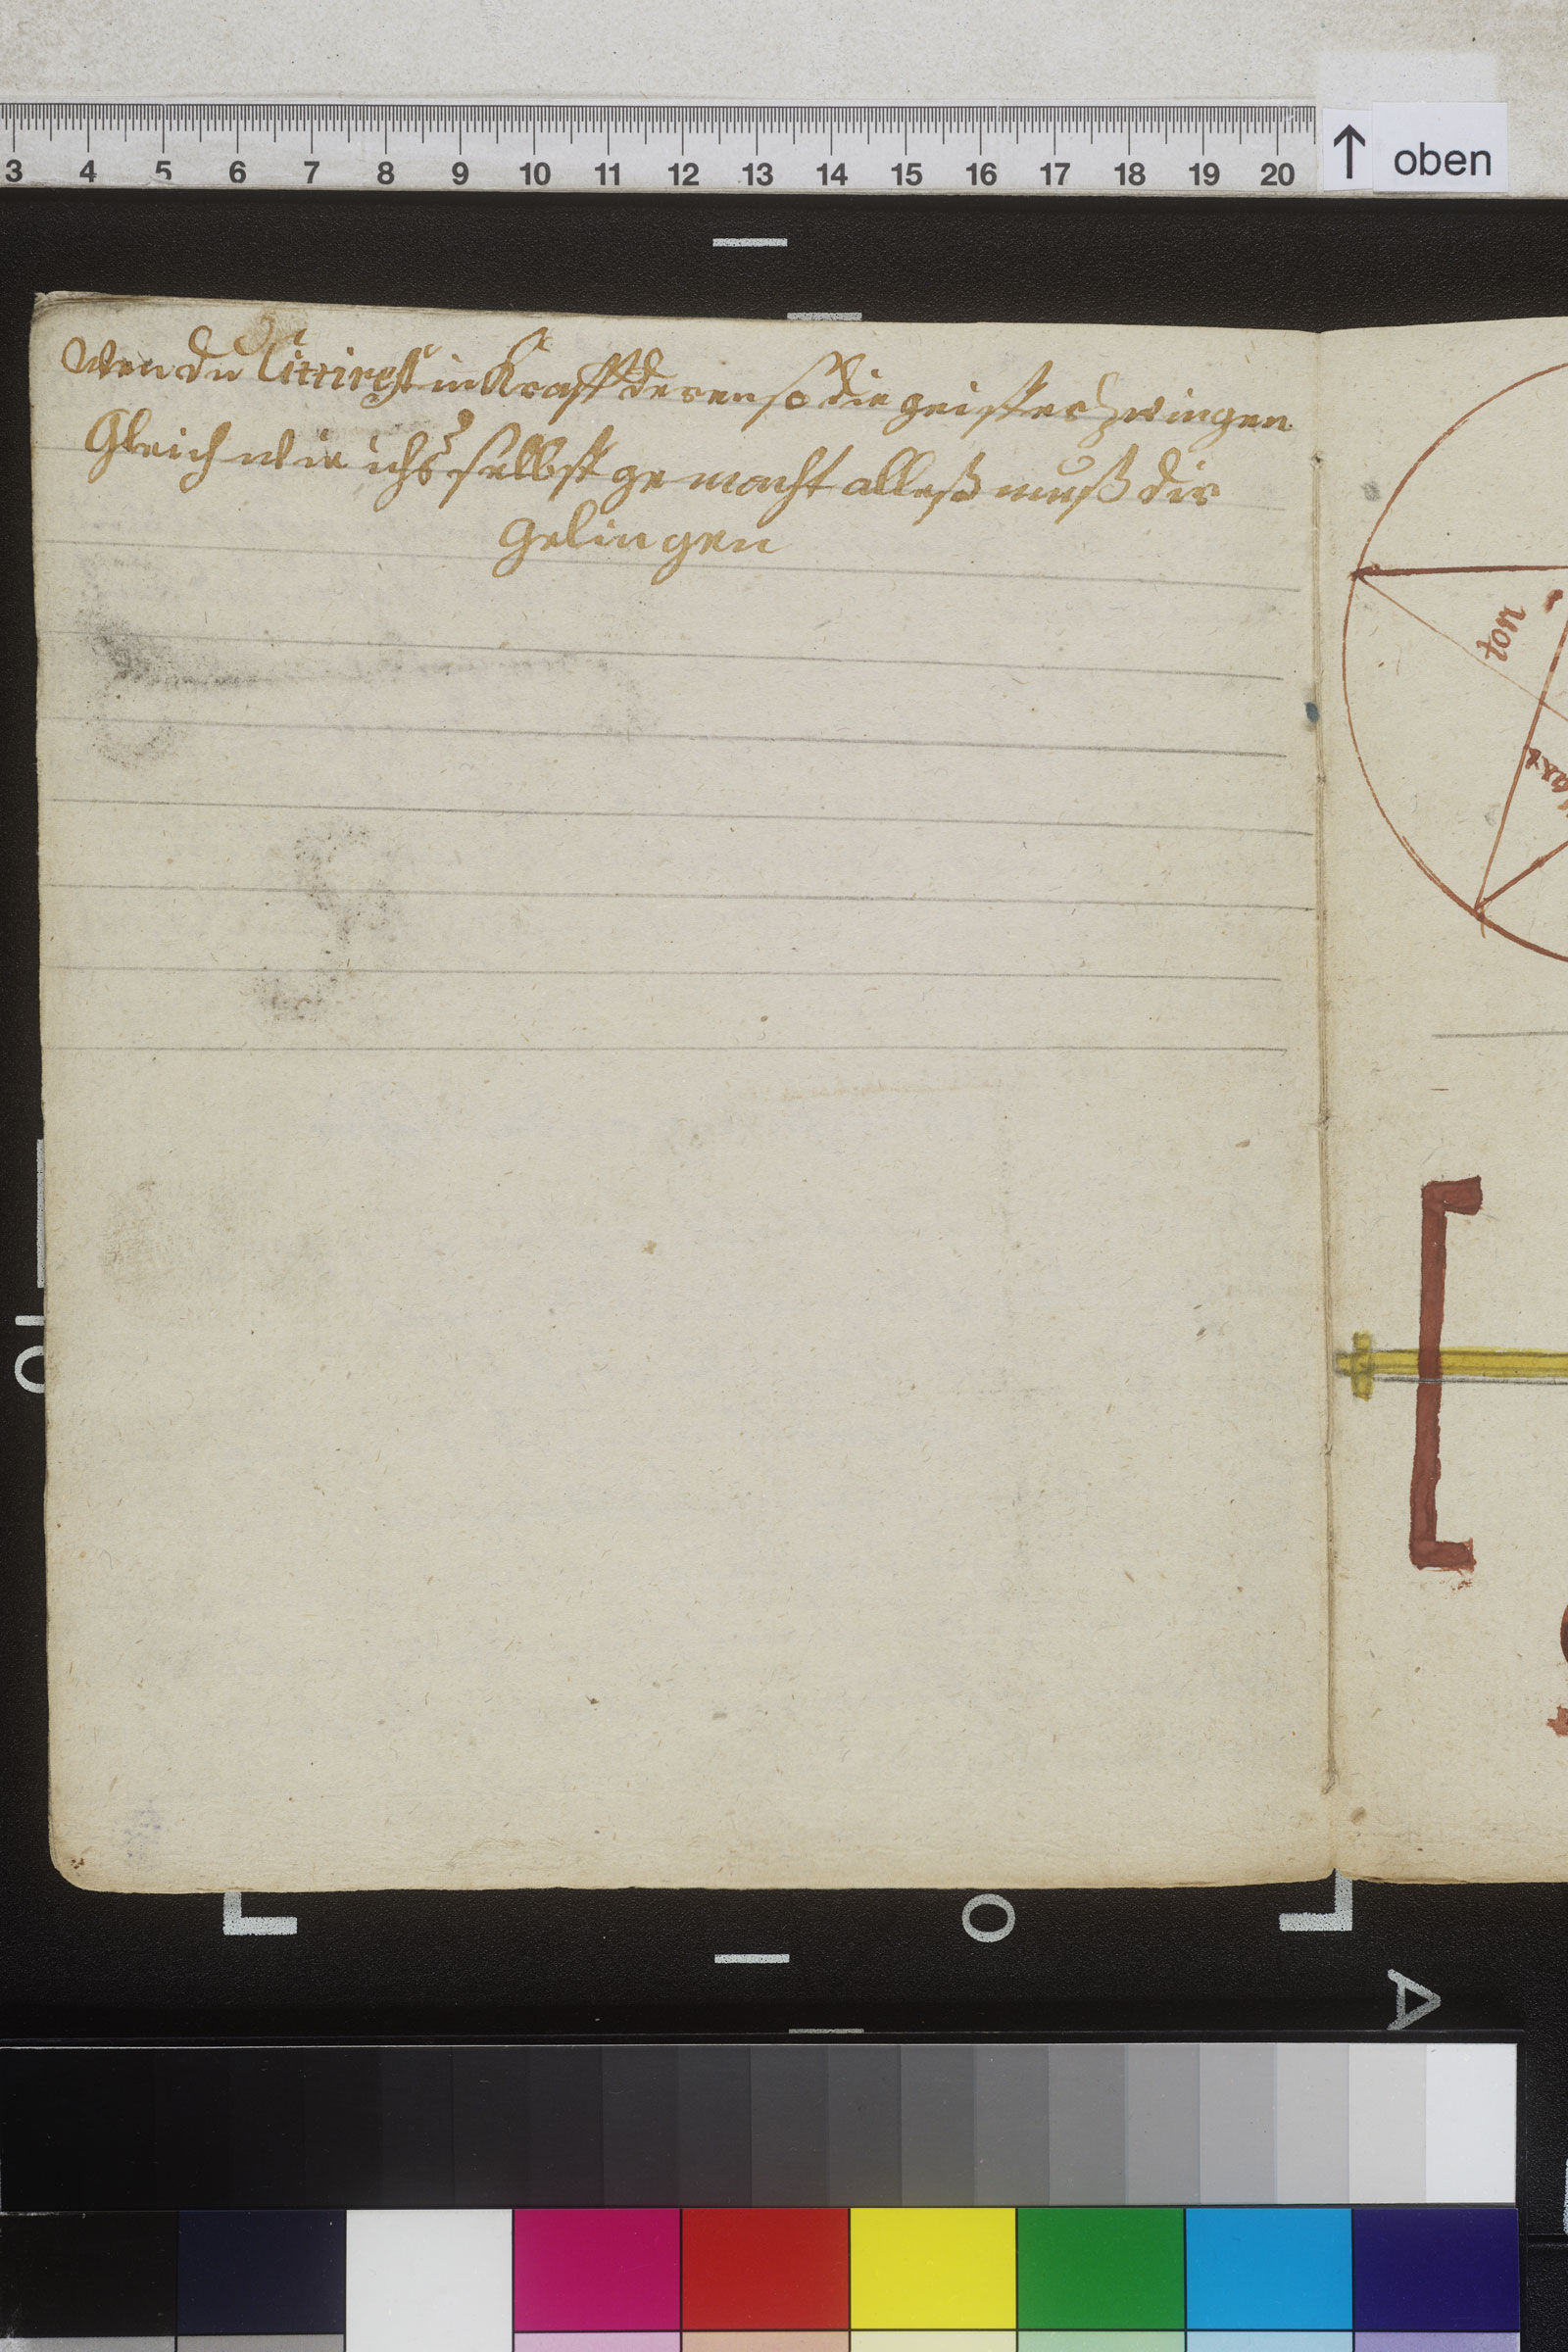 3 4 5 6 7 8 9 10 11 12 13 14 15 16 17 18 19 20
oben
Wen du Cittirest in Krafft deren so die geister zwingen
Gleich wie ichs selbst gemacht alleß muß dir
Gelingen
ton
O
A